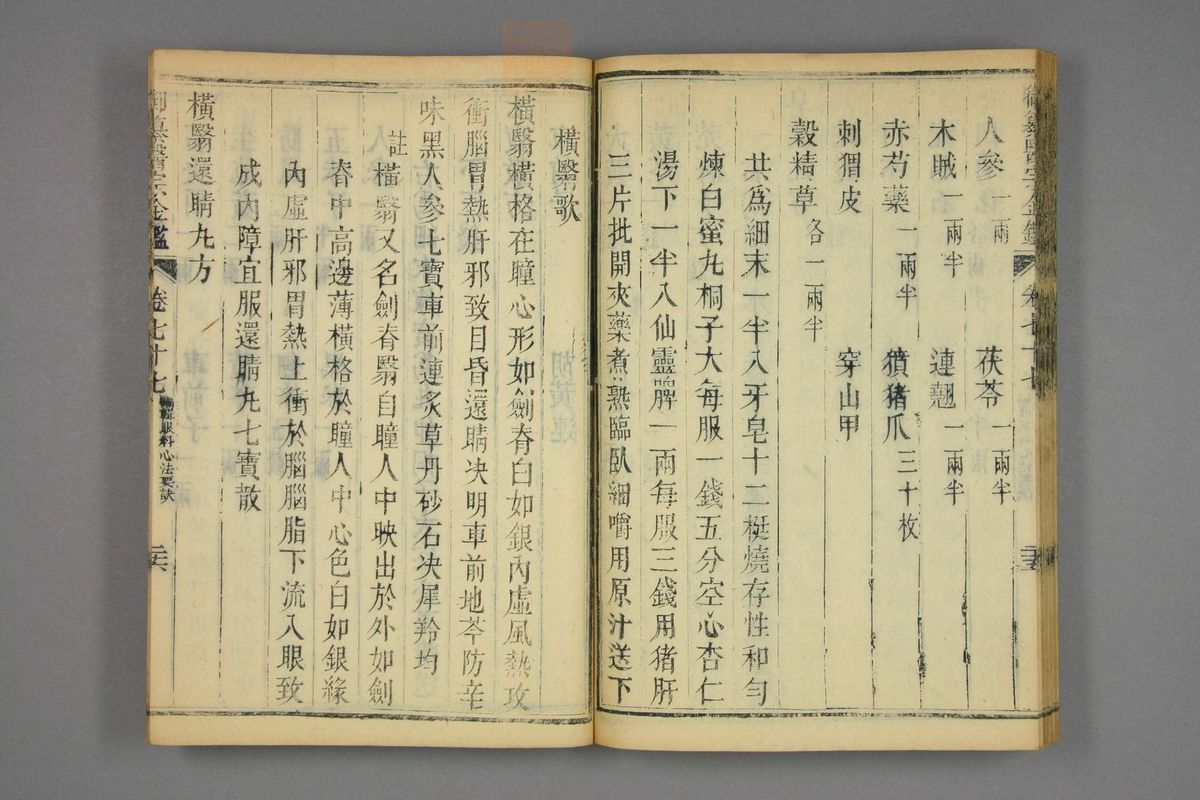 人參一兩　茯苓一兩半
木賊一兩半　連翹一兩半
赤芍藥一兩半　獖猪爪三十枚
刺猬皮　穿山甲
穀精草各一兩半
共爲細末一半入牙皂十二梃燒存性和勻
煉白蜜丸桐子大每服一錢五分空心杏仁
湯下一半入仙靈脾一兩每服三錢用猪肝
三片批開夾藥煮熟臨臥細嚼用原汁送下
橫翳歌
橫翳橫格在瞳心形如劍脊白如銀內虛風熱攻
衝腦胃熱肝邪致目昏還睛决明車前地芩防辛
味黑人參七寶車前連炙草丹砂石决犀羚均
註橫翳又名劍脊翳自瞳人中映出於外如劍
脊中高邊薄橫格於瞳人中心色白如銀緣
內虛肝邪胃熱上衝於腦腦脂下流入眼致
成內障宜服還睛丸七寶散
橫翳還睛丸方
金鑑
卷七十七
編輯眼科心法要訣
二十六